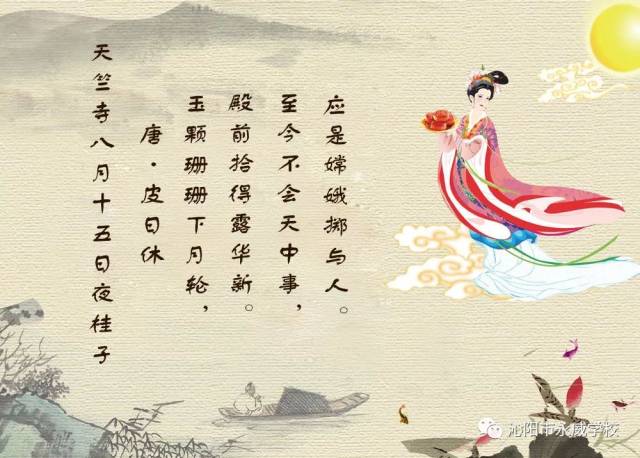 天竺寺八月十五日夜桂子
唐·皮日休
玉颗珊珊下月轮，
殿前拾得露华新。
至今不会天中事，
应是嫦娥掷与人。
沁阳市永威学校